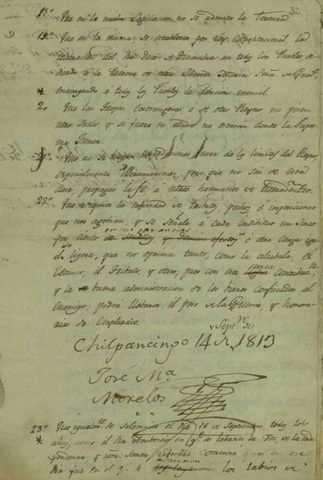 32
18.º Que en la nueva Legislacion no se admita la Tortura
19.º Que en la misma se establezca por Ley Constitucional, la
celebracion del dia doce de Diciembre en todos los Pueblos, de-
dicado a la Patrona de nuestra Libertad Maria Sma. de Guadalupe,
encargando a todos los Pueblos la devocion mensal
* 20. Que las tropas estrangeras o de otro Reyno no pisen
nuestro suelo, y si fuere en ayuda no estarán donde la Supre-
ma Junta.
21.º Que no se hagan Expediciones fuera de los limites del Reyno,
especialmente Ultramarinas, pero que no son de esta
clase propagar la fe a nuestros hermanos de tierradentro.
22.º Que se quite la infinidad de tributos, pechos e imposiciones
que nos agobian, y se señale a cada individuo un cinco
por ciento en sus ganancias, o otra carga igual
ligera, que no oprima tanto, como la alcabala, el
Estanco, el Tributo, y otros, pues con esta corta Contribucion,
y la buena administracion de los bienes confiscados al
Enemigo, podrá llebarse el peso de la Guerra, y honora-
rios de Empleados.
Chilpancingo 14 de Septre. de 1813
José Ma.
Morelos
23.º Que igualmte. se solemnice el dia 16 de Septiembre todos los
* años, como el dia Aniversario en que se lebantó la Voz de la Inde-
pendencia, y nuestra Santa Libertad Comenzó, pues en ese
dia fue en el qe. se los labios de